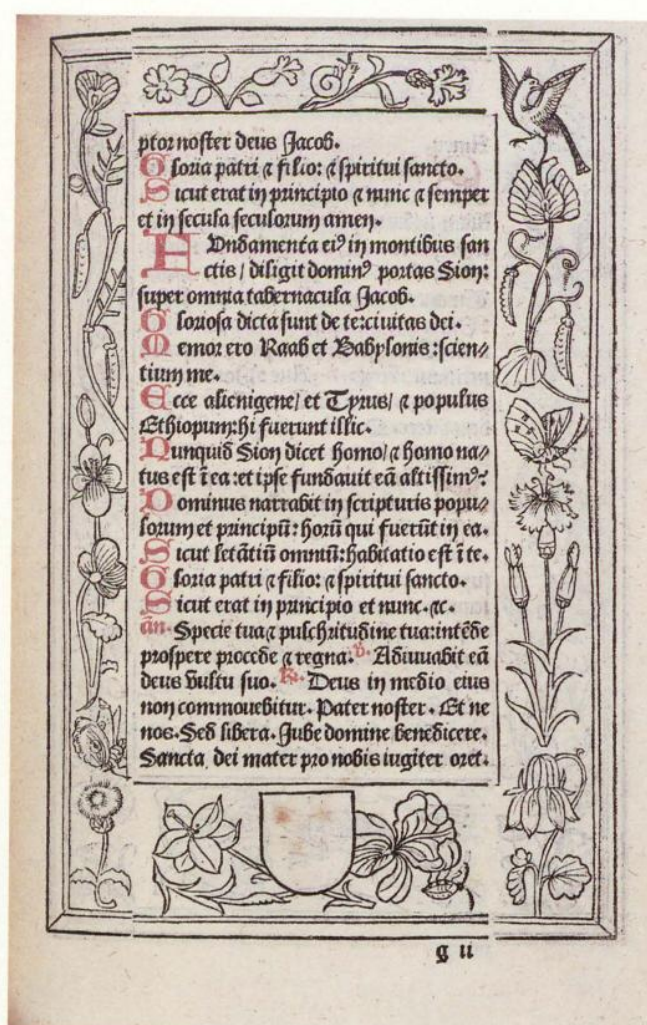 ptor noster deus Jacob.
Gloria patri ⁊ filio: ⁊ spiritui sancto.
Sicut erat in principio ⁊ nunc ⁊ semper
et in secula seculorum amen.
FUndamenta eiꝰ in montibus san
ctis / diligit dominꝰ portas Sion:
super omnia tabernacula Jacob.
Gloriosa dicta sunt de te: civitas dei.
Memor ero Raab et Babylonis: scien⸗
tium me.
Ecce alienigene/ et Tyrus/ ⁊ populus
Ethiopum: hi fuerunt illic.
Nunquid Sion dicet homo/ ⁊ homo na⸗
tus est ī ea: et ipse fundauit eā altissimꝰ?
Dominus narrabit in scripturis popu⸗
lorum et principū: horū qui fuerūt in ea.
Sicut letātiū omniū: habitatio est ī te.
Gloria patri ⁊ filio: ⁊ spiritui sancto.
Sicut erat in principio et nunc. ⁊c.
añ. Specie tua ⁊ pulchritudine tua: intēde
prospere procede ⁊ regna. v. Adiuuabit eā
deus vultu suo. R. Deus in medio eius
non commouebitur. Pater noster. Et ne
nos. Sed libera. Jube domine benedicere.
Sancta dei mater pro nobis iugiter oret.
g ii